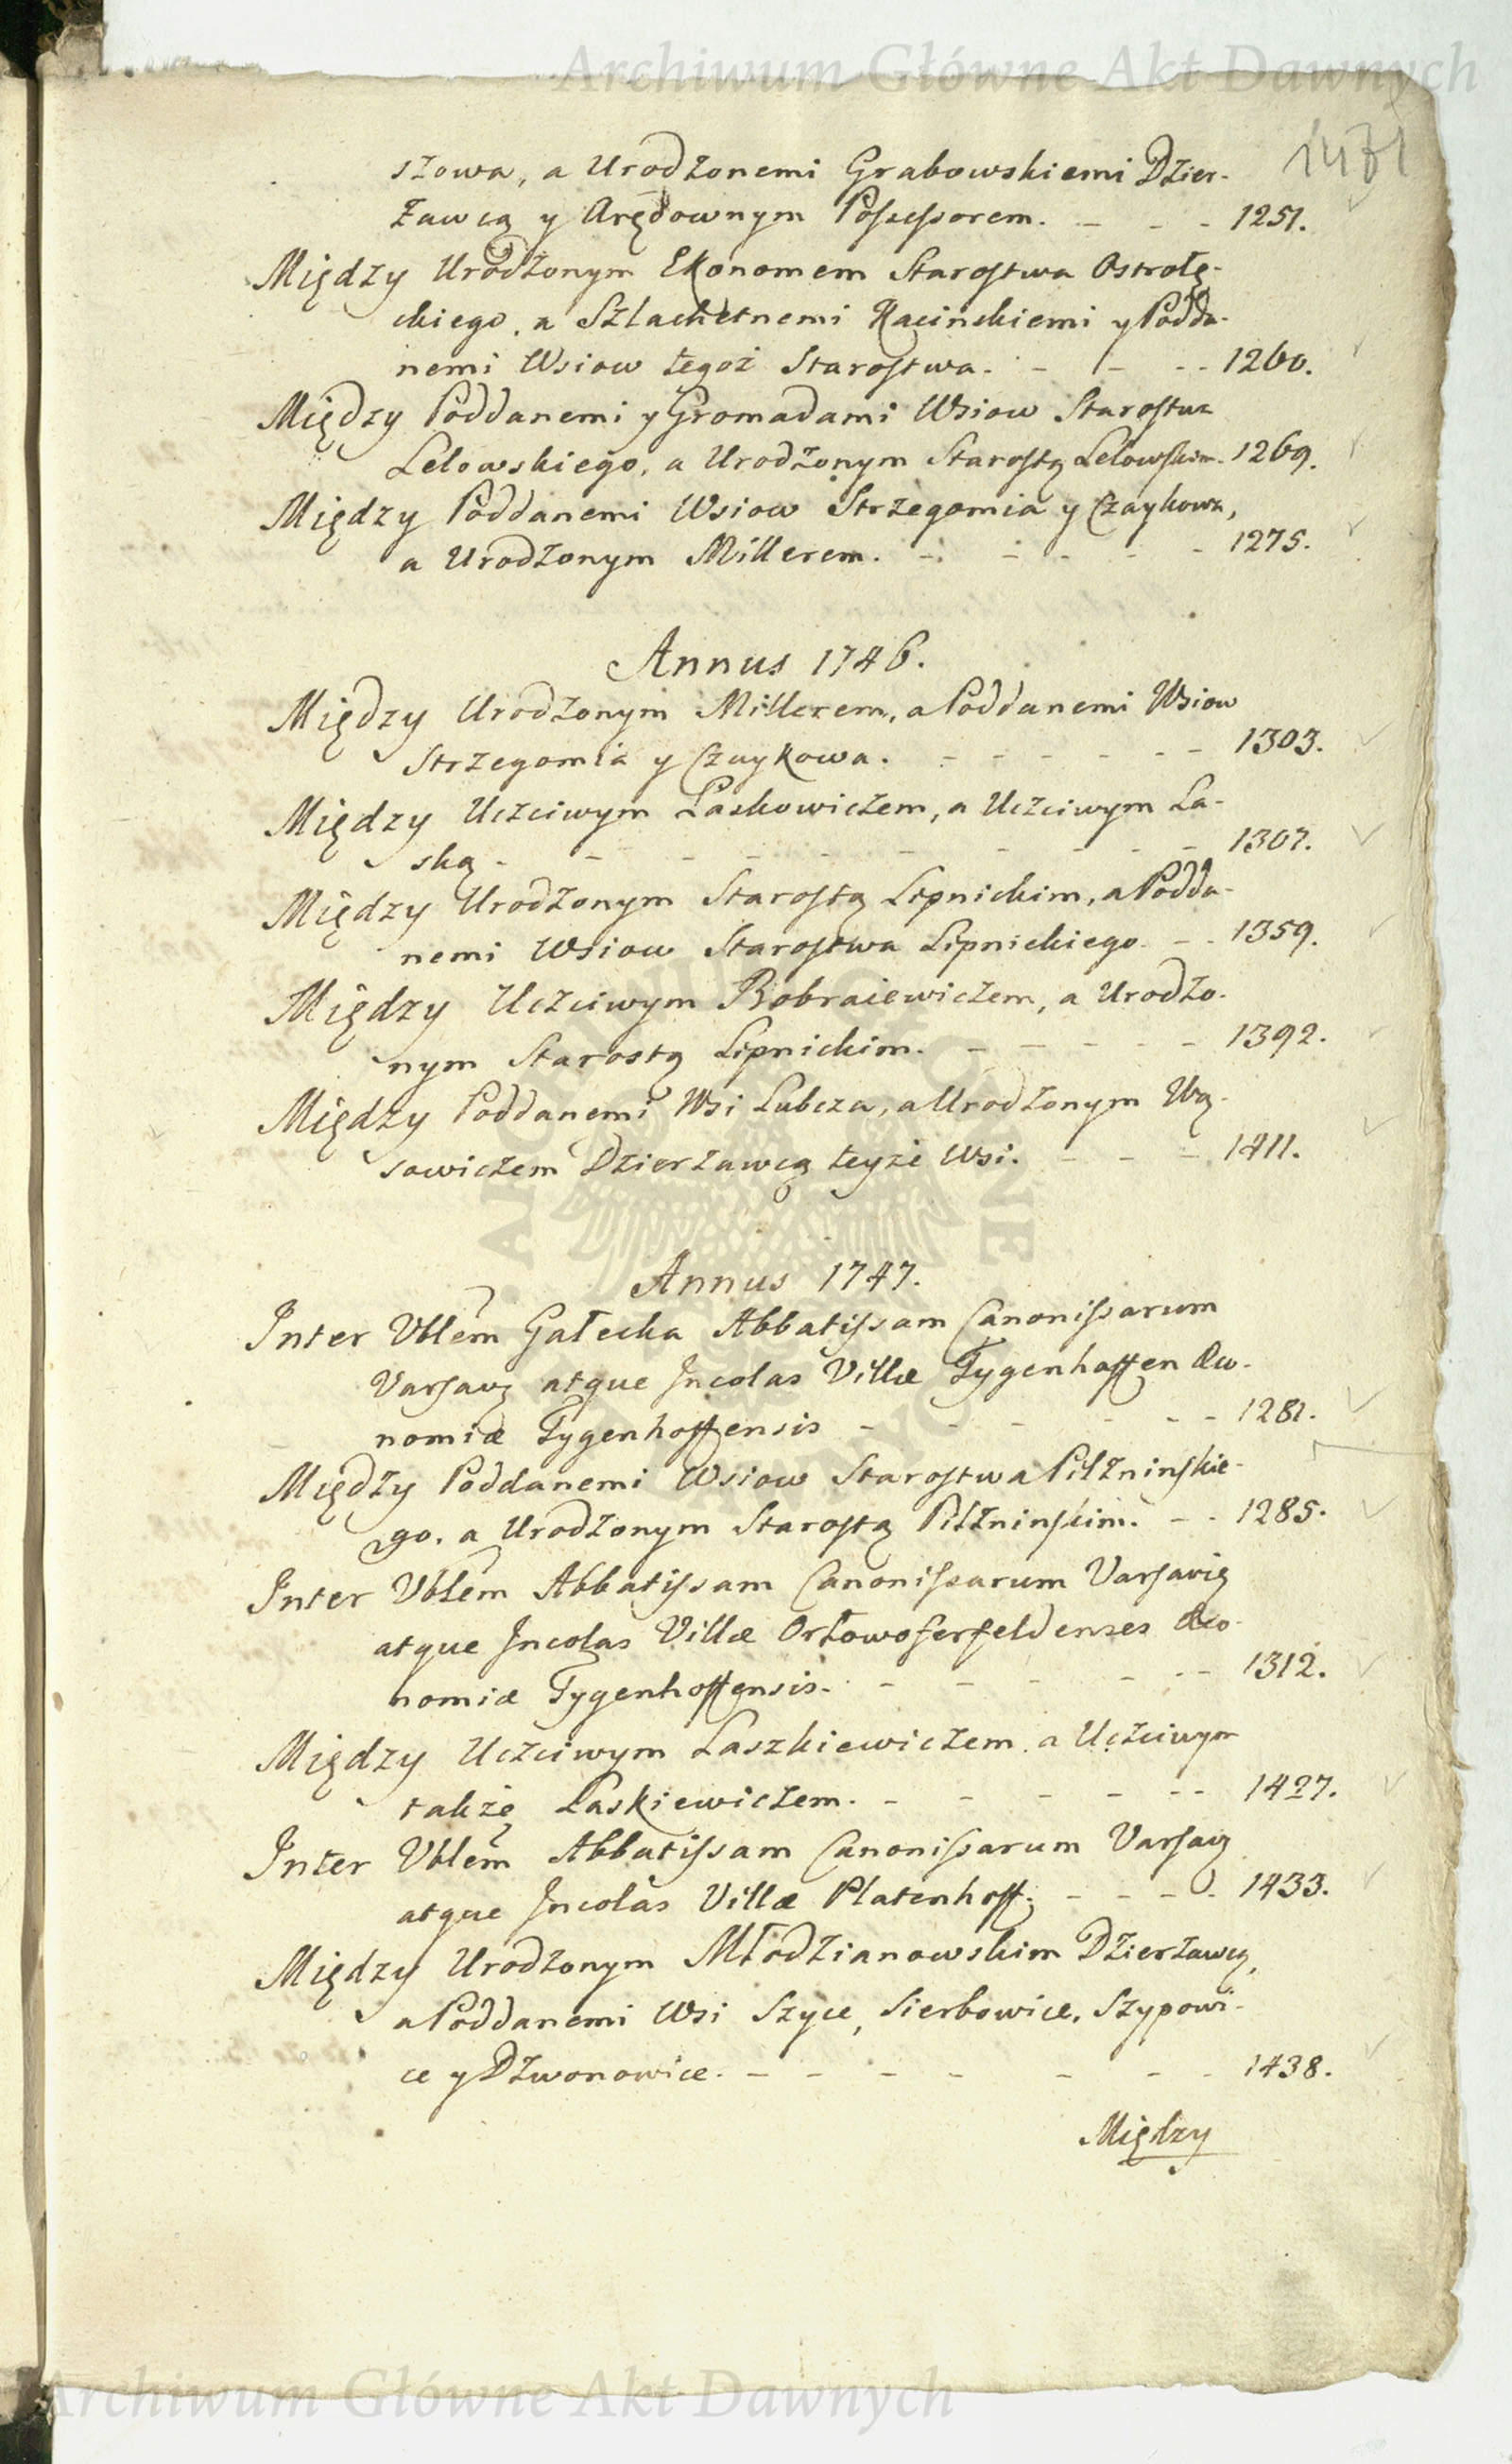 Archiwum Główne Akt Dawnych
1471
szowa, a Urodzonemi Grabowskiemi Dzier-
żawcą y Arędownym Possessorem. - - - 1251.
Między Urodzonym Ekonomem Starostwa Ostrołę-
ckiego, a Szlachetnemi Kacinskiemi y Podda-
nemi Wsiow tegoż Starostwa. - - - - 1260.
Między Poddanemi y Gromadami Wsiow Starostwa
Lelowskiego, a Urodzonym Starostą Lelowskim. 1269.
Między Poddanemi Wsiow Strzegomia y Czaykowa,
a Urodzonym Millerem. - - - - - 1275.
Annus 1746.
Między Urodzonym Millerem, a Poddanemi Wsiow
Strzegomia y Czaykowa. - - - - - - 1303.
Między Uczciwym Laskowiczem, a Uczciwym La-
ską - - - - - - - - - - 1307.
Między Urodzonym Starostą Lipnickim, a Podda-
nemi Wsiow Starostwa Lipnickiego - - 1359.
Między Uczciwym Bobraiewiczem, a Urodzo-
nym Starostą Lipnickim. - - - - - 1392.
Między Poddanemi Wsi Lubcza, a Urodzonym Wą-
sowiczem Dzierżawcą teyże Wsi. - - - 1411.
Annus 1747.
Inter Vblem Gałecka Abbatissam Canonissarum
Varsavę atque Incolas Villæ Tygenhoffen Œco-
nomiæ Tygenhoffensis - - - - - - 1281.
Między Poddanemi Wsiow Starostwa Pilzninskie-
go, a Urodzonym Starostą Pilzninskim. - - 1285.
Inter Vblem Abbatissam Canonissarum Varsavię
atque Incolas Villæ Orłowoferfeldenses Œco-
nomiæ Tygenhoffensis. - - - - - - 1312.
Między Uczciwym Laszkiewiczem, a Uczciwym
także Laskiewiczem. - - - - - - 1427.
Inter Vblem Abbatissam Canonissarum Varsavę
atque Incolas Villæ Platenhoff. - - - - 1433.
Między Urodzonym Młodzianowskim Dzierżawcą,
a Poddanemi Wsi Szyce, Sierbowice, Szypowi-
ce y Dzwonowice. - - - - - - - 1438.
Między
Archiwum Główne Akt Dawnych